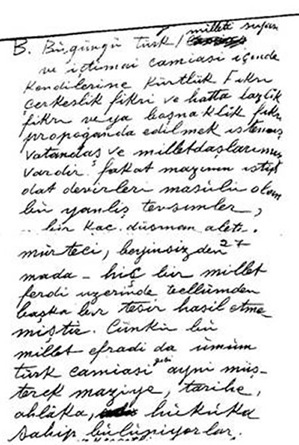 B. Bugüngü türk milleti siyasi
ve içtimai camiasi içinde
kendilerine Kürtlük fikri
çerkeslik fikri ve hatta lazlik
fikri veya boşnaklik fikri
propaganda edilmek istenmiş
vatandaş ve milletdaşlarımız
vardır. fakat mazinin istip
dat devirleri masulü olan
bu yanlış tevsimler,
bir kaç düşman aleti
mürteci, beyinsizden
mada hiç bir millet
ferdi üzerinde teellümden
başka bir tesir hasıl etme
miştir. Çünkü bu
millet efradi da umum
türk camiasi gibi ayni müş
terek maziye, tarihe,
ahlâka, hukuka
sahip bulunuyorlar.